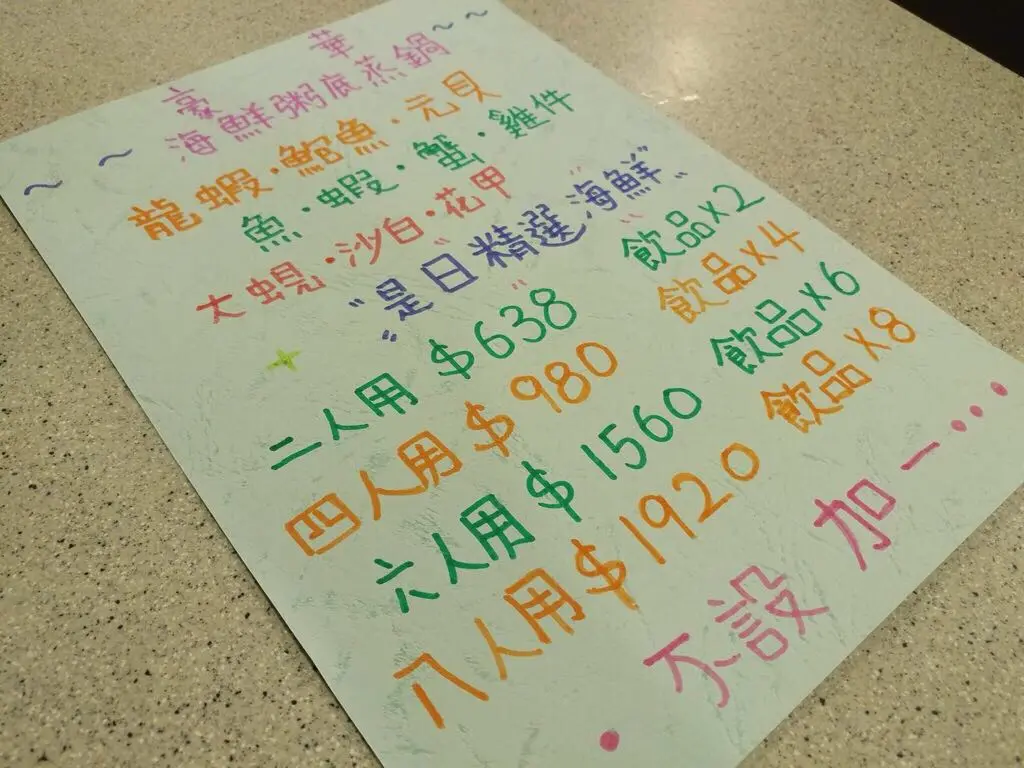 ~ 豪華 ~
~ 海鮮粥底蒸鍋 ~
龍蝦·鮑魚·元貝
魚·蝦·蟹·雞件
大蜆·沙白·花甲
"是日精選海鮮"
+
二人用 $638 飲品x2
四人用 $980 飲品x4
六人用 $1560 飲品x6
八人用 $1920 飲品x8
·不設加一···